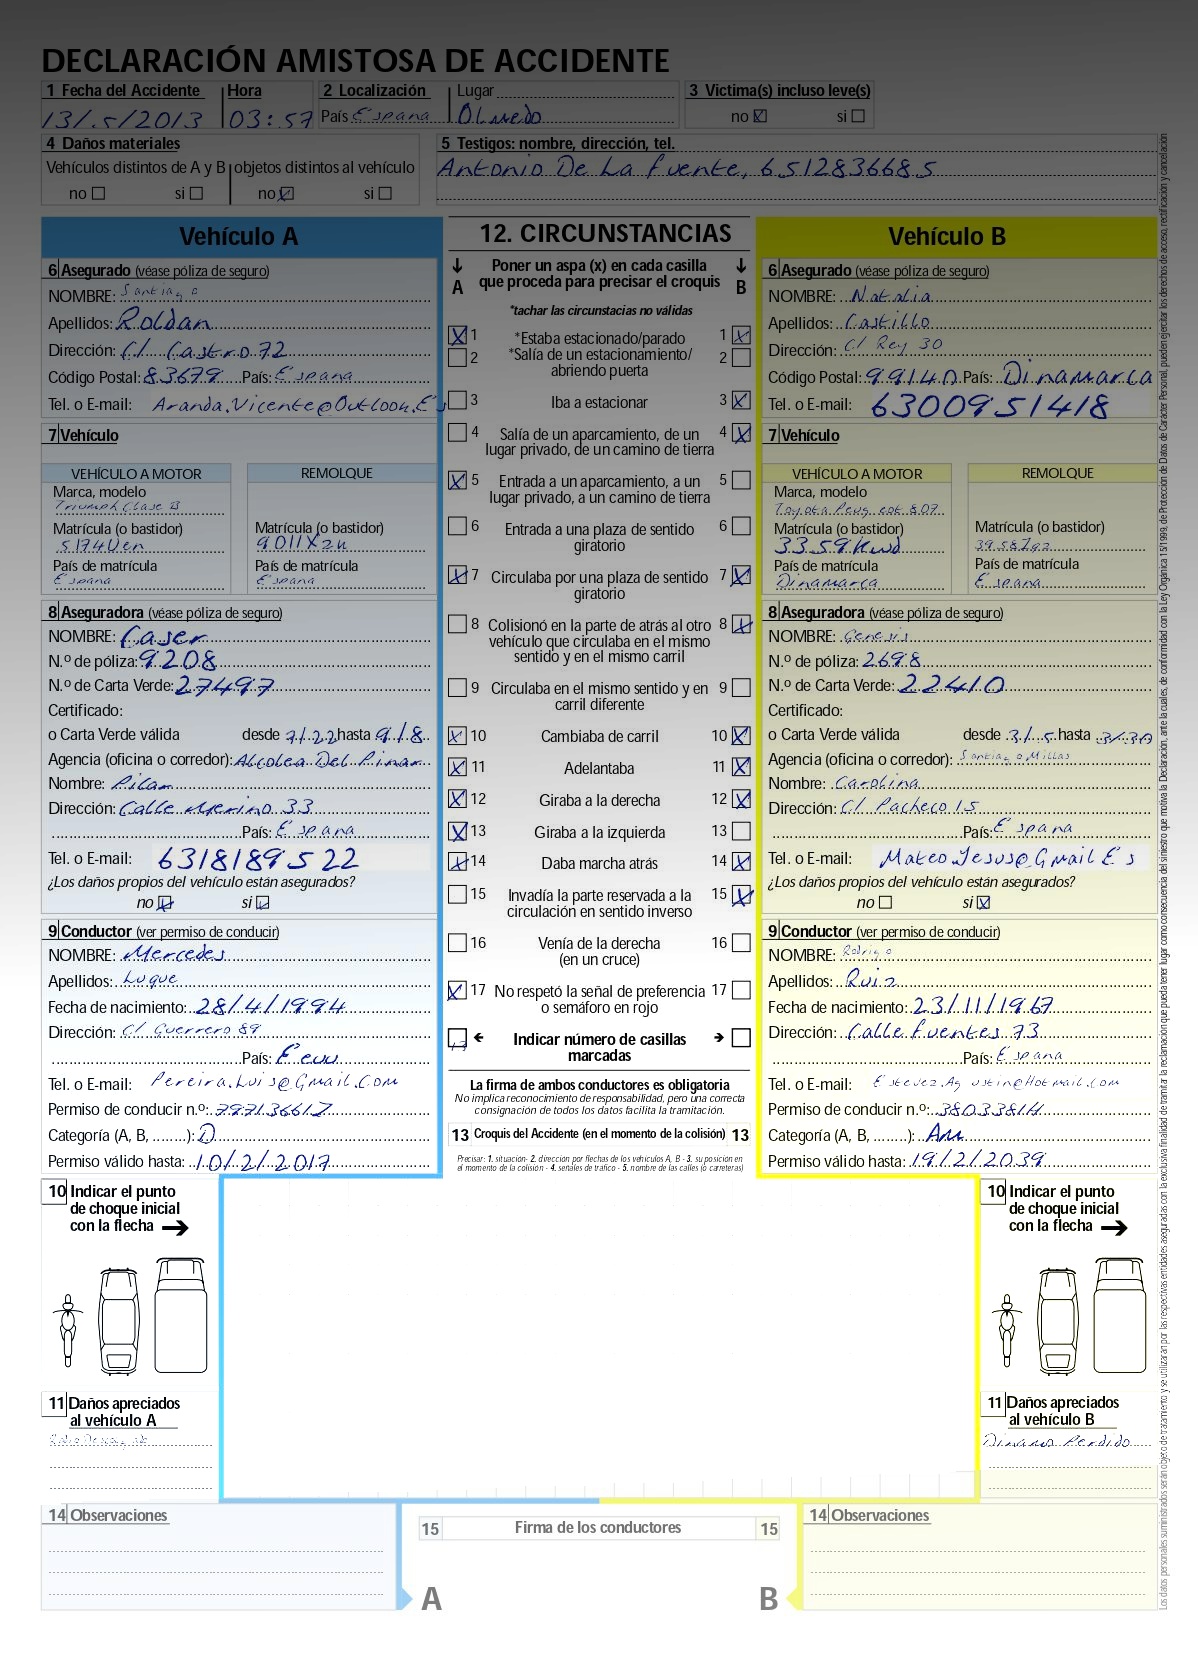 DECLARACIÓN AMISTOSA DE ACCIDENTE
1 Fecha del Accidente Hora 2 Localización Lugar 3 Victima(s) incluso leve(s)
13/.5/2013 03:57 País Espana Olmedo no si
4 Daños materiales 5 Testigos: nombre, dirección, tel.
Vehículos distintos de A y B objetos distintos al vehículo Antonio De La Fuente, 6512836685
no si no si
Vehículo A
6 Asegurado (véase póliza de seguro)
NOMBRE: Santiago
Apellidos: Roldan
Dirección: C/ Castro 72
Código Postal: 83679 País: Espana
Tel. o E-mail: Aranda.Vicente@Outlook.Es
7 Vehículo
VEHÍCULO A MOTOR REMOLQUE
Marca, modelo
Triumph Clase B
Matrícula (o bastidor) Matrícula (o bastidor)
5174Uen 9011Xzu
País de matrícula País de matrícula
Espana Espana
8 Aseguradora (véase póliza de seguro)
NOMBRE: Caser
N.º de póliza: 9208
N.º de Carta Verde: 27497
Certificado:
o Carta Verde válida desde 7/.22 hasta 9/8
Agencia (oficina o corredor): Alcolea Del Pinar
Nombre: Pilar
Dirección: Calle Merino 33
País: Espana
Tel. o E-mail: 6318189522
¿Los daños propios del vehículo están asegurados?
no si
9 Conductor (ver permiso de conducir)
NOMBRE: Mercedes
Apellidos: Luque
Fecha de nacimiento: 28/4/1994
Dirección: C/ Guerrero 89
País: Eeuu
Tel. o E-mail: Pereira.Luis@Gmail.Com
Permiso de conducir n.º: 79713661Z
Categoría (A, B, ........): D
Permiso válido hasta: 10/2/2017
10 Indicar el punto
de choque inicial
con la flecha
11 Daños apreciados
al vehículo A
14 Observaciones
12. CIRCUNSTANCIAS
A Poner un aspa (x) en cada casilla B
que proceda para precisar el croquis
*tachar las circunstacias no válidas
1 *Estaba estacionado/parado 1
2 *Salía de un estacionamiento/ 2
abriendo puerta
3 Iba a estacionar 3
4 Salía de un aparcamiento, de un 4
lugar privado, de un camino de tierra
5 Entrada a un aparcamiento, a un 5
lugar privado, a un camino de tierra
6 Entrada a una plaza de sentido 6
giratorio
7 Circulaba por una plaza de sentido 7
giratorio
8 Colisionó en la parte de atrás al otro 8
vehículo que circulaba en el mismo
sentido y en el mismo carril
9 Circulaba en el mismo sentido y en 9
carril diferente
10 Cambiaba de carril 10
11 Adelantaba 11
12 Giraba a la derecha 12
13 Giraba a la izquierda 13
14 Daba marcha atrás 14
15 Invadía la parte reservada a la 15
circulación en sentido inverso
16 Venía de la derecha 16
(en un cruce)
17 No respetó la señal de preferencia 17
o semáforo en rojo
Indicar número de casillas
marcadas
La firma de ambos conductores es obligatoria
No implica reconocimiento de responsabilidad, pero una correcta
consignación de todos los datos facilita la tramitación.
13 Croquis del Accidente (en el momento de la colisión) 13
Precisar: 1. situación- 2. dirección por flechas de los vehículos A, B - 3. su posición en
el momento de la colisión - 4. señales de tráfico - 5. nombre de las calles (o carreteras)
15 Firma de los conductores 15
A B
Vehículo B
6 Asegurado (véase póliza de seguro)
NOMBRE: Natalia
Apellidos: Castillo
Dirección: C/ Rey 30
Código Postal: 99140 País: Dinamarca
Tel. o E-mail: 6300951418
7 Vehículo
VEHÍCULO A MOTOR REMOLQUE
Marca, modelo
Toyota Peugeot 807
Matrícula (o bastidor) Matrícula (o bastidor)
3359Kwd 3958Zgz
País de matrícula País de matrícula
Dinamarca Espana
8 Aseguradora (véase póliza de seguro)
NOMBRE: Genesis
N.º de póliza: 2698
N.º de Carta Verde: 22410
Certificado:
o Carta Verde válida desde 31/.5 hasta 3/30
Agencia (oficina o corredor): Santiago Millas
Nombre: Carolina
Dirección: C/ Pacheco 15
País: Espana
Tel. o E-mail: Mateo.Jesus@Gmail Es
¿Los daños propios del vehículo están asegurados?
no si
9 Conductor (ver permiso de conducir)
NOMBRE: Rodrigo
Apellidos: Ruiz
Fecha de nacimiento: 23/11/1967
Dirección: Calle Fuentes 73
País: Espana
Tel. o E-mail: Estevez.Agustin@Hotmail.Com
Permiso de conducir n.º: 3803381H
Categoría (A, B, ........): Am
Permiso válido hasta: 19/2/2039
10 Indicar el punto
de choque inicial
con la flecha
11 Daños apreciados
al vehículo B
Dinamo Perdido
14 Observaciones
Los datos personales suministrados serán objeto de tratamiento y se utilizaran por las respectivas entidades aseguradas con la exclusiva finalidad de tramitar la reclamación que pueda tener lugar como consecuencia del siniestro que motiva la Declaración, ante la cuales, de conformidad con la Ley Orgánica 15/1999, de Protección de Datos de Carácter Personal, pueden ejercitar los derechos de acceso, rectificación y cancelación